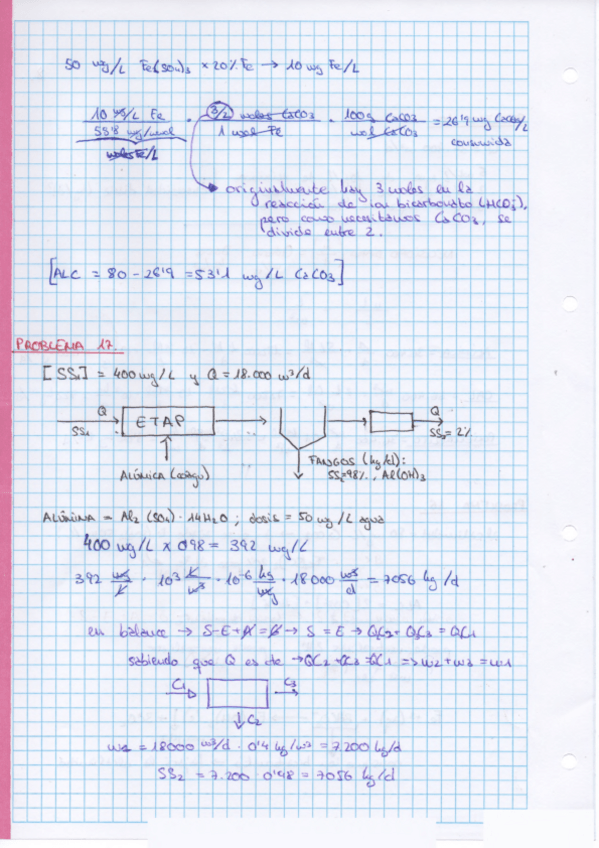 50 mg/L Fe(SO4)3 × 20% Fe → 10 mg Fe/L
10 mg/L Fe / 55'8 mg/mmol · 3/2 moles CaCO3 / 1 mol Fe · 100g CaCO3 / mol CaCO3 = 26'9 mg CaCO3/L
moles Fe/L
consumida
originalmente hay 3 moles en la
reacción de ion bicarbonato (HCO3-),
pero como necesitamos CaCO3, se
divide entre 2.
[ALC = 80 - 26'9 = 53'1 mg/L CaCO3]
PROBLEMA 17.
[SS1] = 400 mg/L y Q = 18.000 m3/d
Q
SS1
ETAP
Q
SS3 = 2%
ALÚMICA (coagu)
FANGOS (kg/d):
SS2=98%, Al(OH)3
ALÚMINA = Al2(SO4)·14H2O; dosis = 50 mg/L agua
400 mg/L × 0'98 = 392 mg/L
392 mg/L · 10^3 L/m3 · 10^-6 kg/mg · 18000 m3/d = 7056 kg/d
en balance → S-E+A=G → S = E → QC2+QC3 = QC1
sabiendo que Q es de → QC2+QC3=QC1 => m2+m3=m1
C1
C3
C2
m1 = 18000 m3/d · 0'4 kg/m3 = 7.200 kg/d
SS2 = 7.200 · 0'98 = 7056 kg/d